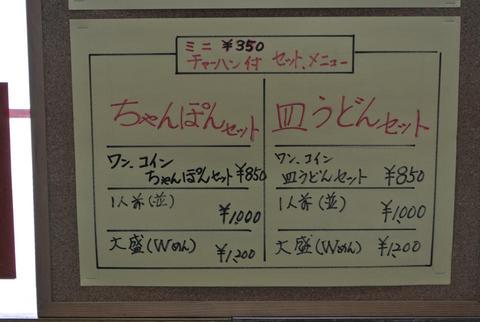 ミニ ¥350
チャーハン付 セット、メニュー
ちゃんぽんセット
ワン、コイン
ちゃんぽんセット ¥850
1人前(並)
¥1,000
大盛(Wめん)
¥1,200
皿うどんセット
ワン、コイン
皿うどんセット ¥850
1人前(並)
¥1,000
大盛(Wめん)
¥1,200